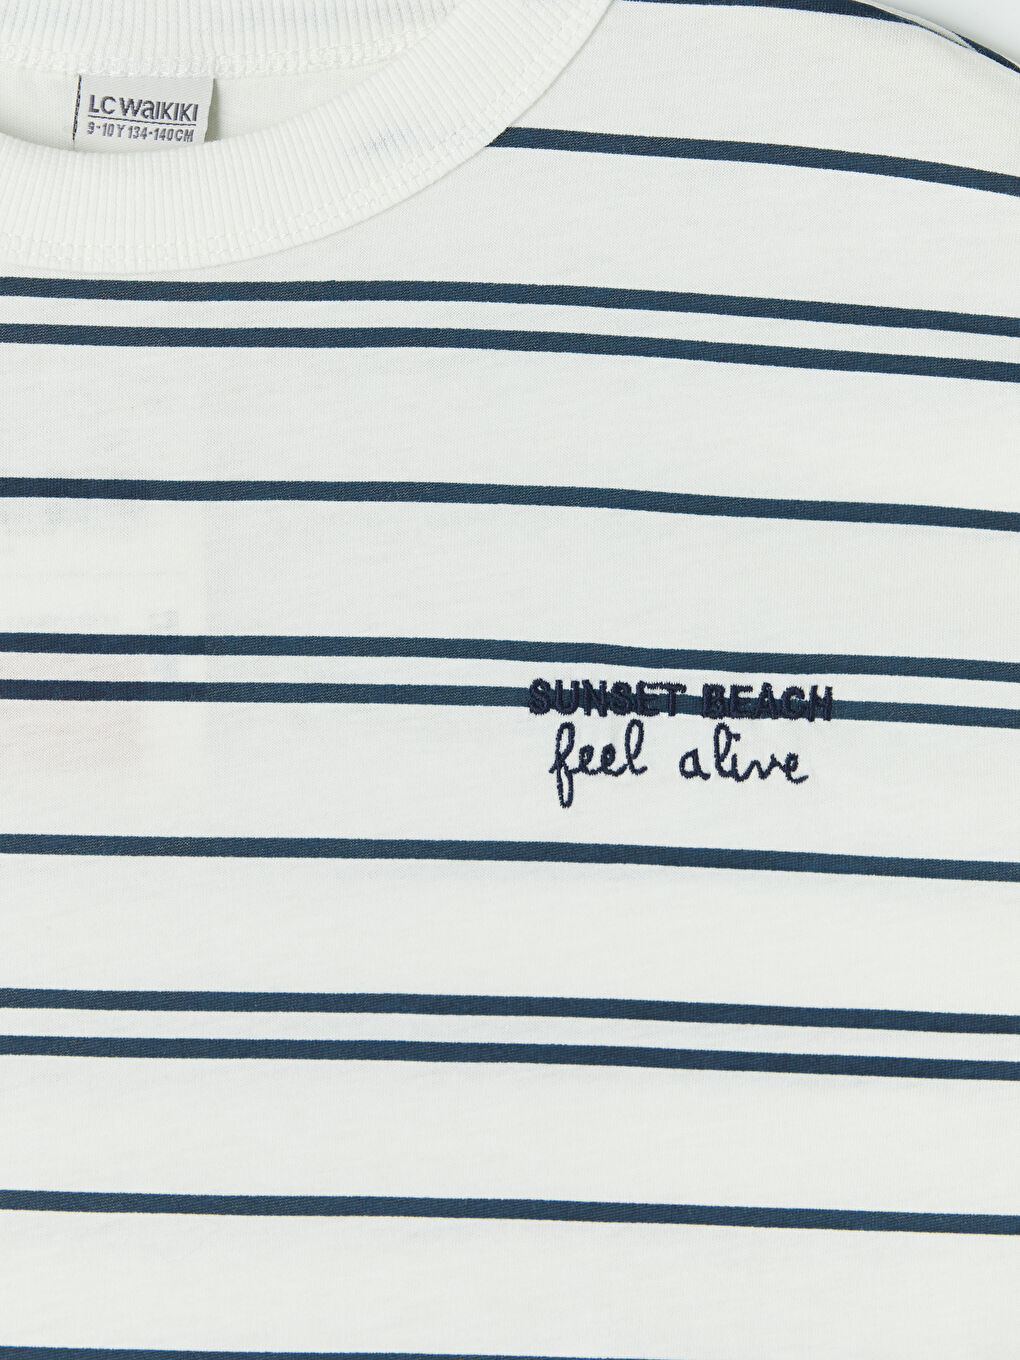 LC WAIKIKI
9-10Y 134-140CM
SUNSET BEACH
feel alive